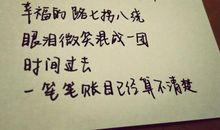 幸福的路七拐八绕
眼泪微笑混成一团
时间过去
一笔笔账目已经算不清楚